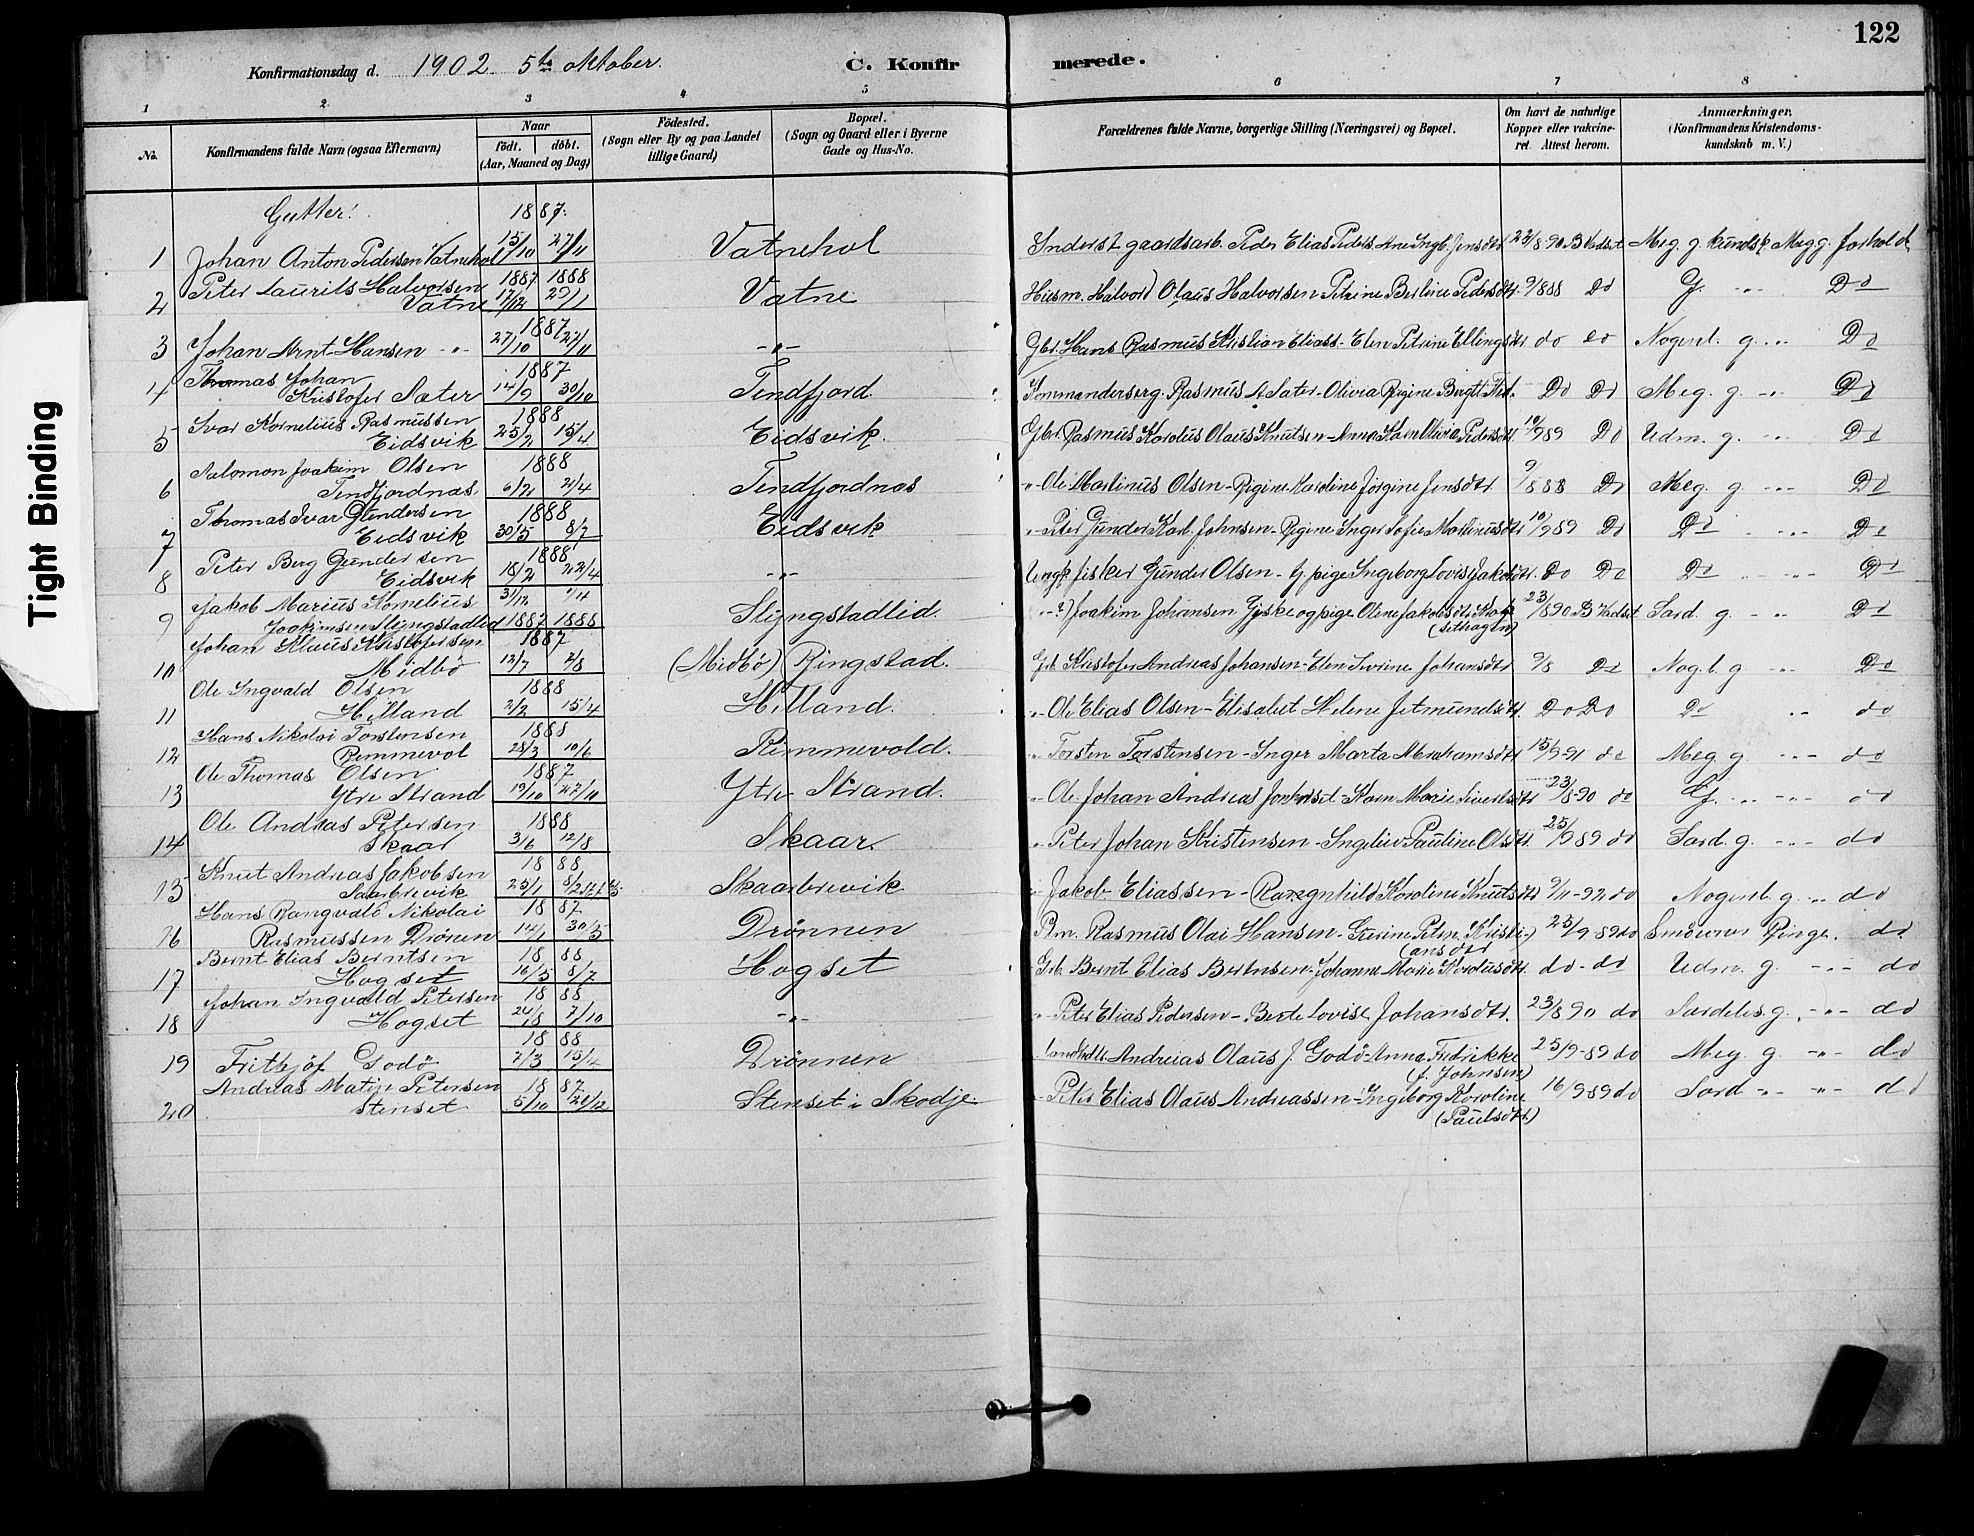 122
Konfirmationsdag d. 1902 5te oktober.
C. Konfirmerede.
1 2 3 4 5 6 7 8
No.
Konfirmandens fulde Navn (ogsaa Efternavn)
Naar
födt. döbt.
(Aar, Maaned og Dag)
Födested.
(Sogn eller By og paa Landet
tillige Gaard)
Bopæl.
(Sogn og Gaard eller i Byerne
Gade og Hus-No.
Forældrenes fulde Navne, borgerlige Stilling (Næringsvei) og Bopæl.
Om havt de naturlige
Kopper eller vakcine-
ret Attest herom.
Anmærkninger.
(Konfirmandens Kristendoms-
kundskab m. V.)
Gutter! 1887.
1 Johan Anton Pedersen Vatnehol 15/10 27/11 Vatnehol Inderst gaardsarb. Peder Elias Peders. Ane Ingb. Jensdtr 23/8 90 B Vadset Meg. g. kundsk. Meg g. forhold
Peter Laurits Halvorsen 1887 1888
2 Vatne 17/12 29/1 Vatne Husm. Halvord Olaus Halvorsen Petrine Berline Pedersdtr. 9/8 88 Do G. -"- Do
1887
3 Johan Arnt Hansen -"- 27/10 27/11 -"- Gbr. Hans Rasmus Kristian Eliass.- Elen Petrine Ellingsdtr do do Nogenl. g. -"- Do
Thomas Johan 1887
4 Kristofer Sæter 14/9 30/10 Tendfjord. Kommanderserg. Rasmus A Sæter- Olivia Regine Do Do Meg. g. -"- Do
Ivar Kornelius Rasmussen 1888
5 Eidsvik 25/2 15/4 Eidsvik. Gbr. Rasmus Karolus Olaus Knutsen- Anna Karn Olivia Pedersdtr. 10/9 89 Do Udm. g. -"- Do
Salomon Joakim Olsen 1888
6 Tendfjordnas. 6/2 2/4 Tendfjordnas "- Ole Martinus Olsen- Regine Karoline Jørgine Jensdtr. 9/8 88 Do Meg. g. -"- Do
Thomas Ivar Gundersen 1888
7 Eidsvik 30/5 8/7 Eidsvik "- Peter Gunder Karl Johnsen- Regine Inger Sofie Martinusdtr 10/9 89 Do Do -"- Do
Peter Berg Gundersen 1888
8 Eidsvik 18/2 22/4 -"- Ungk. fisker Gunder Olsen- G. pige Ingeborg Lovise Jakobsdtr. Do Do Do -"- Do
Jakob Marius Kornelius 31/12 1/4
9 Joakimsen Slyngstadlid 1887 1888 Slyngstadlid. Joakim Johansen Giske og pige Oline Jakobsdtr. 23/8 90 B Vadset Sard. g. -"- Do
Johan Klaus Kristofersen 1887
10 Midbö 12/7 7/8 (Midbö) Ringstad. Gb. Kristofer Andreas Johansen- Elen Severine Johansdtr. 9/8 Do Nog. l. g -"- Do
Ole Ingvald Olsen 1888
11 Hilland 2/2 15/4 Hilland. "- Ole Elias Olsen- Elisabet Helene Jetmundsdtr. Do Do Do -"- do
Hans Nikolai Torstensen 1888
12 Remmevol 28/3 10/6 Rimmevold. "- Torsten Torstensen- Inger Marta Abrahamsdtr 15/9-91 do Meg. g -"- do
Ole Thomas Olsen 1887
13 Ytre Strand 19/10 27/10 Ytre Strand. "- Ole Johan Andreas - Karn Marie Sivertsdtr 23/8-90 do G. -"- do
Ole Andreas Petersen 1888
14 Skaar 3/6 12/8 Skaar. "- Peter Johan Kristensen- Ingeliev Pauline Olsdtr. 25/9 89 do Sard. g. -"- do
Knut Andreas Jakobsen 1888
15 Saarbrevik 25/1 Skaarbrevik. "- Jakob Eliassen- Karoline Knutsdtr 9/11-92 do Nogenl. g. -"- do
Hans Rangvald Nikolai 1887
16 Rasmussen Drönen 14/1 30/5 Drönnen Pm. Rasmus Olai Hansen- Peter. Kristi-) 25/9-89 do Ringe. do
(ansdtr
Bernt Elias Berntsen 1888
17 Hogset 16/5 8/7 Hogset Grb. Bernt Elias Berntsen- Johanne Marie Kordusdtr. do-do Udm. g. -"- do
Johan Ingvald Petersen 1888
18 Hogset 24/8 7/10 -"- "- Peter Elias Pedersen- Berte Lovise Johansdtr. 23/8 90 do Sardeles. g. -"- do
1888
19 Fritjöf Godö 2/3 15/4 Drönnen Landhdl. Andreas Olaus J. Godö- Anna Fredrikke 25/9-89 do Meg. g -"- do
(f. Johnsen)
Andreas Matin Petersen 1887
20 Stenset 5/10 26/12 Stenset i Skodje. - Peter Elias Olaus Andreassen- Ingeborg Karoline 16/9 89 do Sard -"- -"- do
(Paulsdtr)
Tight Binding